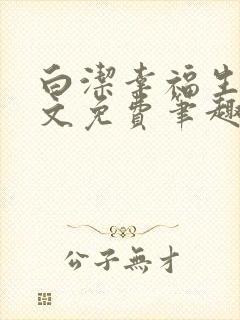 白潔幸福生
文免費筆趣
公子無才